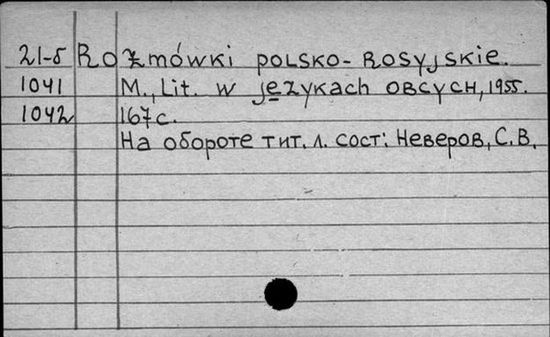 21-5 Rozmówki polsko-rosyjskie.
1041 M., Lit. w językach obcych, 1955.
1042 167 с.
На обороте тит. л. сост: Неверов, С. В.